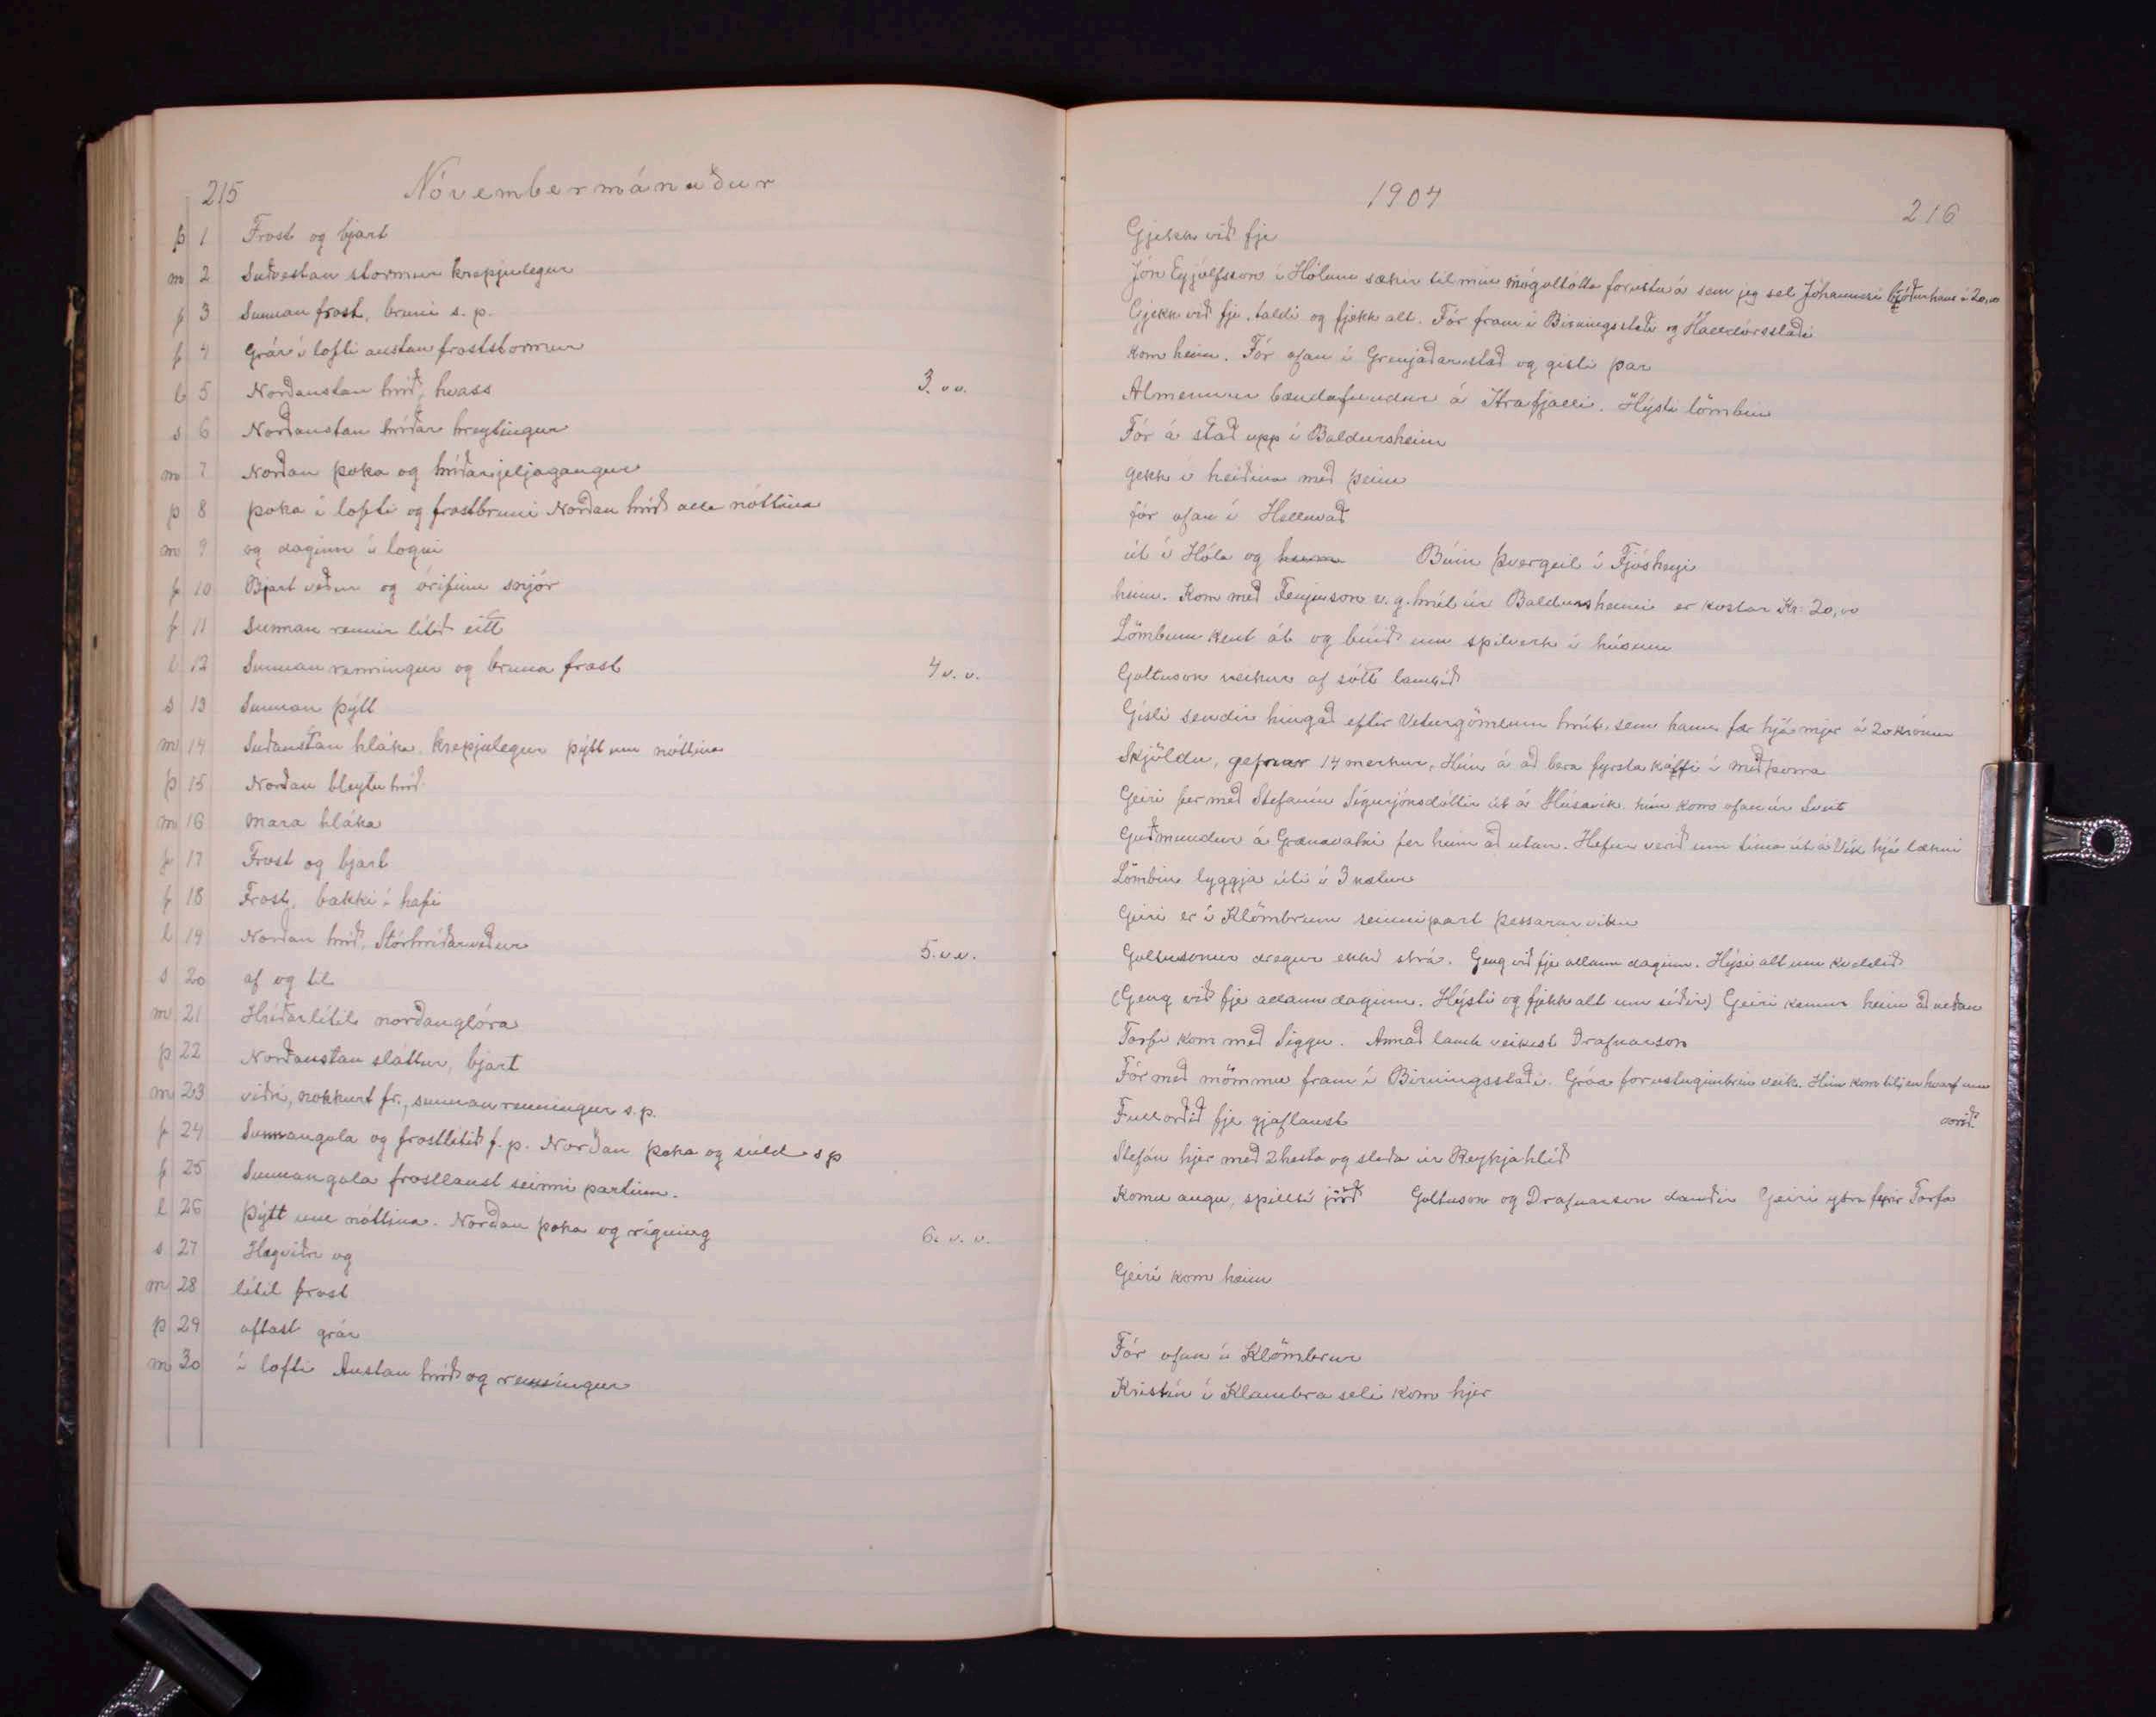 215 Nóvembermánuður
þ 1 Frost og bjart
m 2 Suðvestan stormur krepjulegur
f 3 Sunnan frost, bruni s. p.
f 4 Grár í lofti austan froststormur
l 5 Norðaustan hríð, hvass 3. v v.
s 6 Norðaustan hríðar breytingur
m 7 Norðan þoka og hríðarjeljagangur
þ 8 þoka í lofti og frostbruni Norðan hríð alla nóttina
m 9 og daginn í logni
f 10 Bjart veður og órifinn snjór
f 11 Sunnan rennir lítið eitt
l 12 Sunnan renningur og bruna frost 4 v. v.
s 13 Sunnan þýtt
m 14 Suðaustan hláka, krepjulegur þýtt um nóttina
þ 15 Norðan bleytu hríð
m 16 Mara hláka
f 17 Frost og bjart
f 18 Frost, bakki í hafi
l 19 Norðan hríð, Stórhríðarveður 5. v v.
s 20 af og til
m 21 Hríðarlítil norðanglóra
þ 22 Norðaustan sláttur, bjart
m 23 viðri, nokkurt fr., sunnan renningur s. p.
f 24 Sunnangola og frostlítið f. p. Norðan þoka og súld s p
f 25 Sunnangola frostlaust seinni partinn.
l 26 Þýtt um nóttina. Norðan þoka og rigning 6. v. v.
s 27 Hægviðri og
m 28 lítil frost
þ 29 oftast grár
m 30 í lofti Austan hríð og renningur
1904 216
Gjekk við fje
Jón Eyjólfsson í Hólum sækir til mín mógoltótta forustuá sem jeg sel Jóhannesi bróður hans á 20,00
Gjekk við fje, taldi og fjekk alt. Fór fram í Birningsstaði og Halldórsstaði
kom heim. Fór ofan í Grenjaðarstað og gisti þar
Almennur bændafundur á Ytrafjalli. Hýsti lömbin
Fór á stað upp í Baldursheim
gekk í heiðina með þeim
fór ofan í Helluvað
út í Hóla og heim Búin Þvergeil í Fjósheyi
heim. Kom með Fenjuson v. g. hrút úr Baldursheimi er kostar Kr: 20,00
Lömbum kent át og búið um spilverk í húsum
Goltuson veikur af sótt lambið
Gísli sendir hingað eftir Veturgömlum hrút, sem hann fær hjá mjer á 20 krónur
Skjöldu, gefnar 14 merkur, Hún á að bera fyrsta kálfi í miðþorra
Geiri fer með Stefaníu Sigurjónsdóttir út á Húsavík, hún kom ofan úr Sveit
Guðmundur á Grænavatni fer heim að utan. Hefur verið um tíma út á Vík hjá lækni
Lömbin lyggja úti í 3 nætur
Geiri er í Klömbrum seinnipart þessarar viku
Goltusonur dregur ekki strá. Geng við fje allann daginn. Hýsi alt um kveldið
(Geng við fje allann daginn. Hýsti og fjekk alt um síðir) Geiri kemur heim að neðan
Torfi kom með Siggu. Annað lamb veikist Drafnarson
Fór með mömmu fram í Birningsstaði. Gráa forustugimbrin veik. Hún kom til, en hvarf um
Fullorðið fje gjaflaust
Stefán hjer með 2 hesta og sleða úr Reykjahlíð
Komu augu, spillti jörð Goltuson og Drafnarson dauðir Geiri ytra fyrir Torfa
Geiri kom heim
Fór ofan í Klömbrur
Kristín í Klambra seli kom hjer